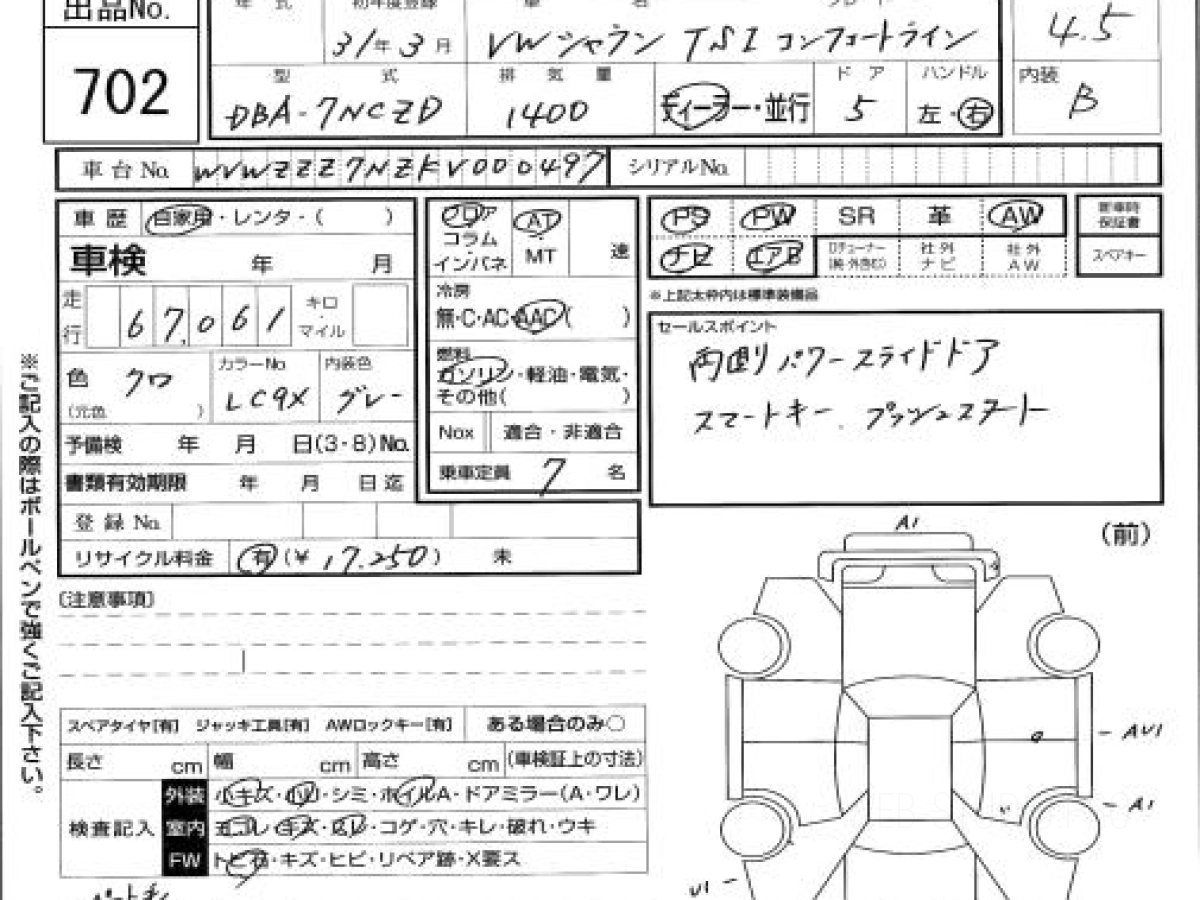 出品No.
702
年 式
初年度登録
車 名
グレード
31年3月
VW シャラン TSI コンフォートライン
4.5
型 式
排 気 量
ド ア
ハンドル
内装
DBA-7NCZD
1400
ディーラー・並行
5
左・右
B
車台No.
WVWZZZ7NZKV000497
シリアルNo.
車歴
自家用・レンタ・( )
車検 年 月
走行
67,061
キロ
マイル
色 クロ
(元色 )
カラーNo
LC9X
内装色
グレー
予備検 年 月 日(3・8)No.
書類有効期限 年 月 日迄
登録No.
リサイクル料金 有(¥17,250) 未
フロア
コラム
インパネ
AT
MT
速
冷房
無・C・AC・AAC( )
燃料
ガソリン・軽油・電気・
その他( )
Nox 適合・非適合
乗車定員 7 名
PS PW SR 革 AW
ナビ エアB
社外ナビ
社外AW
新車時保証書
スペアキー
※上記太枠内は標準装備品
セールスポイント
両側パワースライドドア
スマートキー、プッシュスタート
※ご記入の際はボールペンで強くご記入下さい。
〔注意事項〕
スペアタイヤ[有] ジャッキ工具[有] AWロックキー[有] ある場合のみ○
長さ cm 幅 cm 高さ cm (車検証上の寸法)
検査記入
外装 小キズ・凹・シミ・ホイルA・ドアミラー(A・ワレ)
室内 ヨゴレ・キズ・スレ・コゲ・穴・キレ・破れ・ウキ
FW トビ石・キズ・ヒビ・リペア跡・X要ス
(前)
A1
AU1
A1
U1